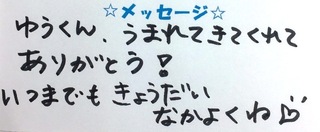 ☆メッセージ☆
ゆうくん、うまれてきてくれて
ありがとう!
いつまでも きょうだい
なかよくね